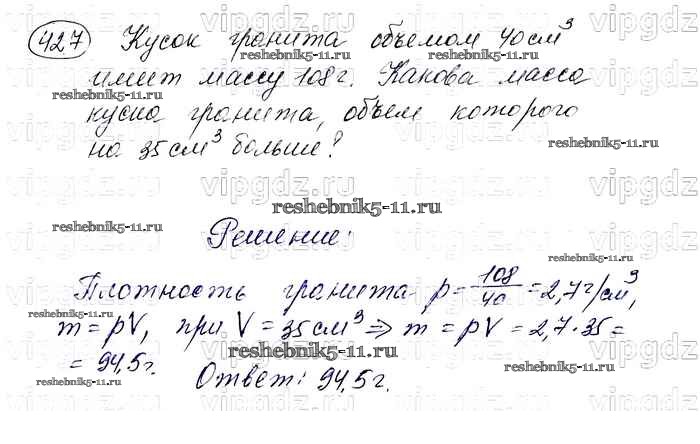 427 Кусок гранита объемом 40 см³
имеет массу 108 г. Какова масса
куска гранита, объем которого
на 35 см³ больше?
Решение:
Плотность гранита ρ = 108/40 = 2,7 г/см³,
m = ρV, при V = 35 см³ ⇒ m = ρV = 2,7 · 35 =
= 94,5 г. Ответ: 94,5 г.
vipgdz.ru
reshebnik5-11.ru